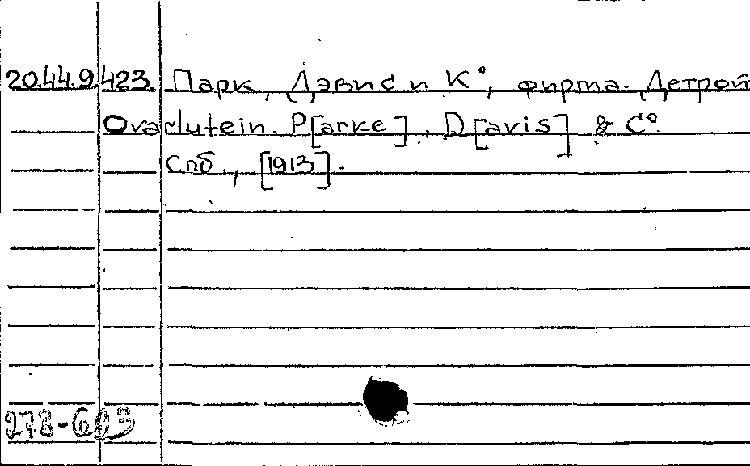 20.44.9.423. Парк, Дэвис и К°, фирма. Детрой
Ovarlutein. P[arke], D[avis] & C°
Спб, [1913].
278-693